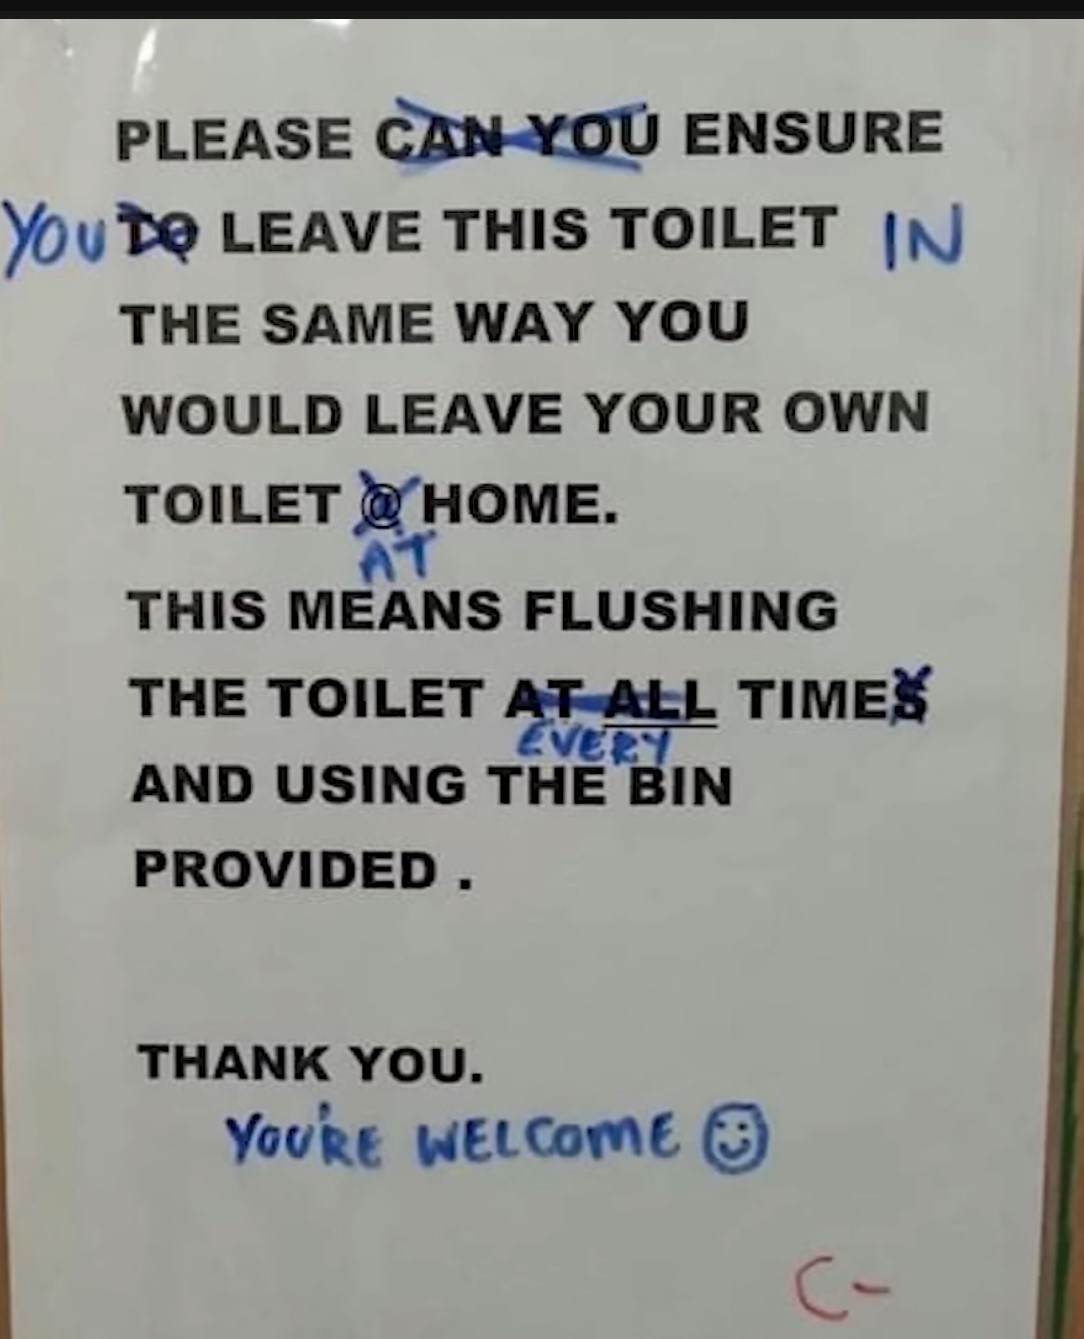 PLEASE CAN YOU ENSURE
YOU TO LEAVE THIS TOILET IN
THE SAME WAY YOU
WOULD LEAVE YOUR OWN
TOILET @ HOME.
AT
THIS MEANS FLUSHING
THE TOILET AT ALL TIMES
EVERY
AND USING THE BIN
PROVIDED .
THANK YOU.
YOU'RE WELCOME ☺
C-